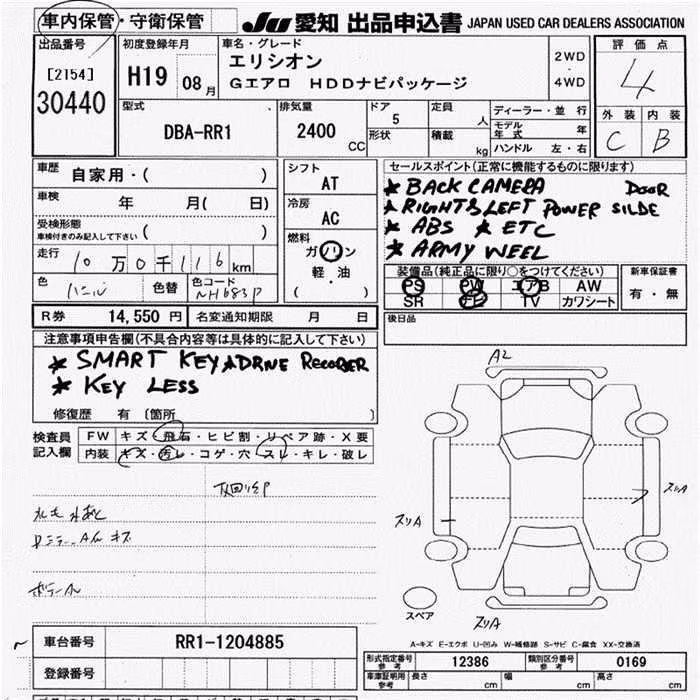 車内保管・守衛保管
JU 愛知 出品申込書 JAPAN USED CAR DEALERS ASSOCIATION
出品番号
[2154]
30440
初度登録年月
H19 08月
車名・グレード
エリシオン
Gエアロ HDDナビパッケージ
2WD
・
4WD
評価点
4
外装 内装
C B
型式
DBA-RR1
排気量
2400 CC
ドア
5
形状
定員
人
積載
kg
ディーラー・並行
モデル年式 年
ハンドル 左・右
車歴
自家用・( )
車検 年 月( 日)
受検形態
車検付きのみ記入して下さい ( )
走行 10万0千116km
色 色替 色コード
NH683P
シフト
AT
冷房
AC
燃料
ガソリン
・
軽・油
( )
セールスポイント(正常に機能するものに限ります)
★ BACK CAMERA DOOR
★ RIGHT&LEFT POWER SILDE
★ ABS ★ ETC
★ ARMY WEEL
装備品(純正品に限り○をつけてください)
PS PW エアB AW
SR TV カワシート
新車保証書
有・無
R券 14,550円 名変通知期限 月 日
後日品
注意事項申告欄(不具合内容等は具体的に記入して下さい)
★ SMART KEY ★DRIVE RECORDER
★ KEY LESS
修復歴 有 〔箇所 〕
検査員
記入欄
FW キズ・飛石・ヒビ割・リペア跡・X要
内装 キズ・汚レ・コゲ・穴・スレ・キレ・破レ
A2
スリA
スリA
スリA
スペア
A-キズ E-エクボ U-凹み W-補修跡 S-サビ C-腐食 XX-交換済
車台番号 RR1-1204885
登録番号
形式指定番号
参考
12386
類別区分番号
参考
0169
車庫証明用
参考
長さ cm 幅 cm 高さ cm